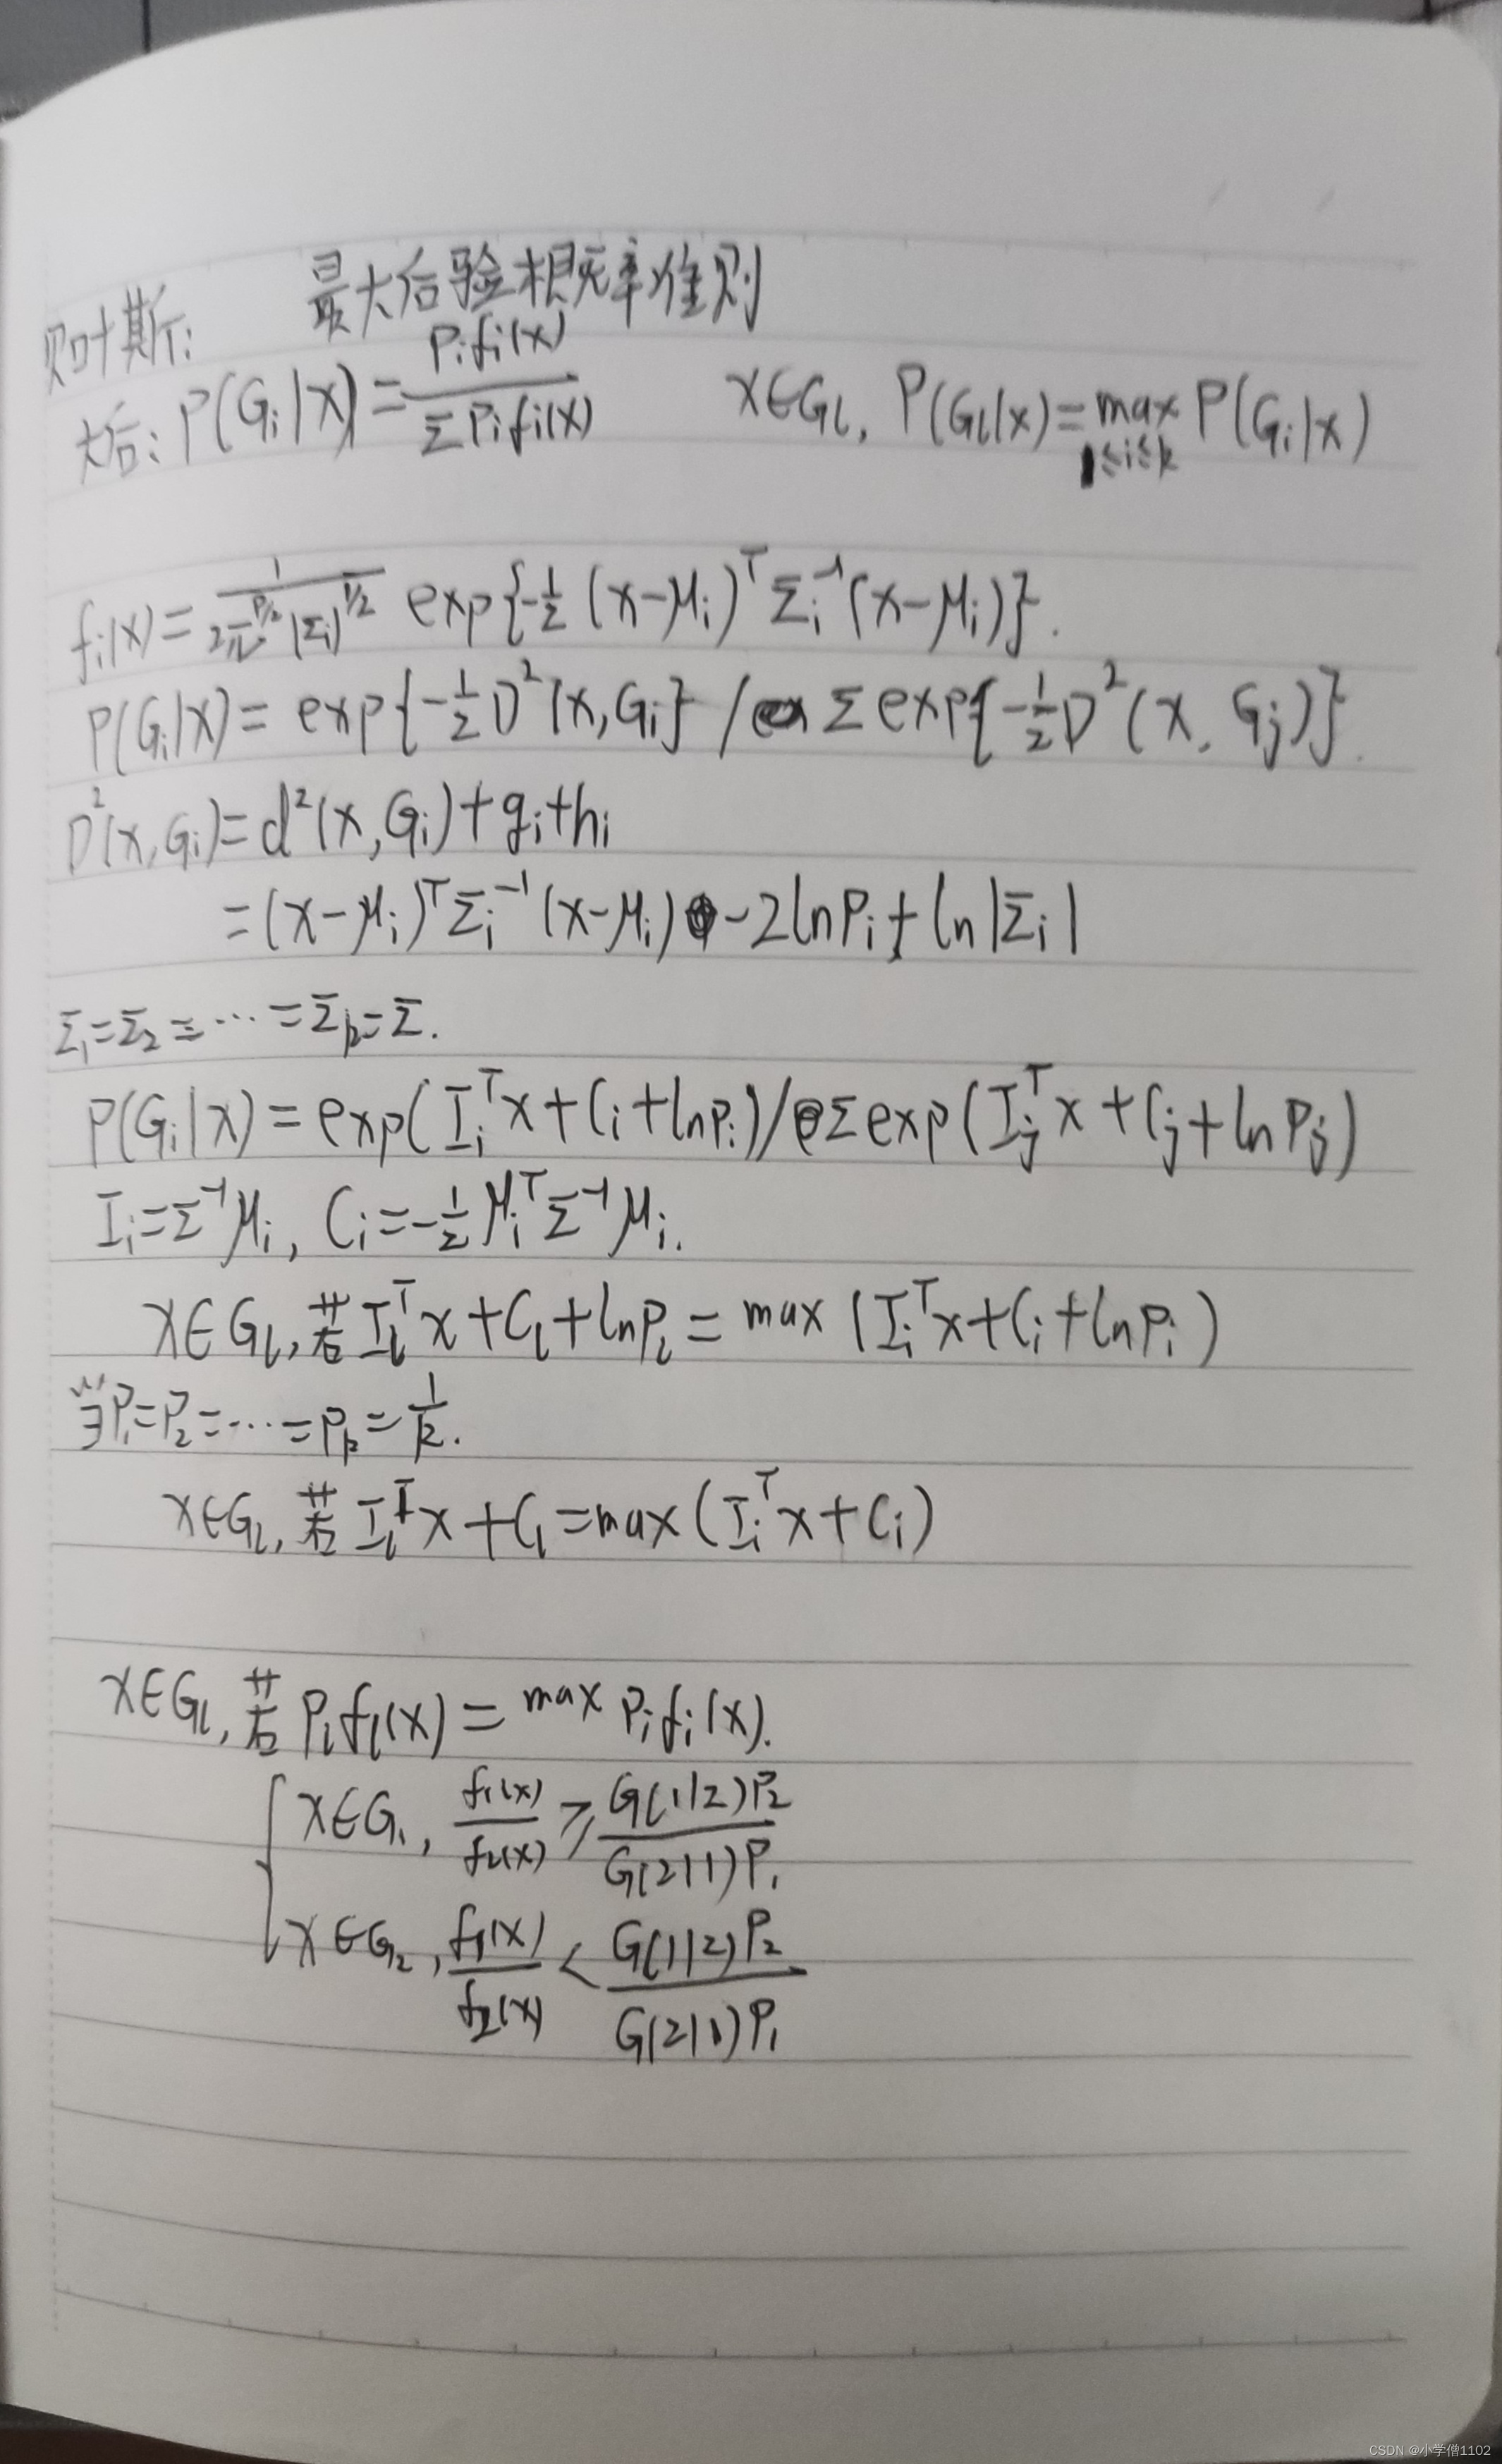 贝叶斯: 最大后验概率准则
大后: P(Gᵢ|X) = pᵢfᵢ(x) / Σpᵢfᵢ(x) X∈Gₗ, P(Gₗ|x) = max_{1≤i≤k} P(Gᵢ|x)
fᵢ(x) = 1 / 2π^{P/2}|Σᵢ|^{1/2} exp{-1/2 (x-μᵢ)ᵀ Σᵢ⁻¹ (x-μᵢ)}.
P(Gᵢ|X) = exp{-1/2 D²(x,Gᵢ} / Σ exp{-1/2 D²(x, Gⱼ)}.
D²(x,Gᵢ) = d²(x,Gᵢ) + gᵢ + hᵢ
= (x-μᵢ)ᵀ Σᵢ⁻¹ (x-μᵢ) - 2lnPᵢ + ln|Σᵢ|
Σ₁ = Σ₂ = ⋯ = Σₖ = Σ.
P(Gᵢ|x) = exp(Iᵢᵀx + Cᵢ + lnpᵢ) / Σ exp(Iⱼᵀx + Cⱼ + lnPⱼ)
Iᵢ = Σ⁻¹μᵢ, Cᵢ = -1/2 μᵢᵀ Σ⁻¹ μᵢ.
X∈Gₗ, 若 Iₗᵀx + Cₗ + lnPₗ = max (Iᵢᵀx + Cᵢ + lnpᵢ)
当P₁ = P₂ = ⋯ = Pₖ = 1/k.
X∈Gₗ, 若 Iₗᵀx + Cₗ = max (Iᵢᵀx + Cᵢ)
X∈Gₗ, 若 pₗfₗ(x) = max pᵢfᵢ(x).
{ X∈G₁, f₁(x)/f₂(x) ≥ G(1|2)P₂ / G(2|1)P₁
X∈G₂, f₁(x)/f₂(x) < G(1|2)P₂ / G(2|1)P₁
CSDN @小学僧1102